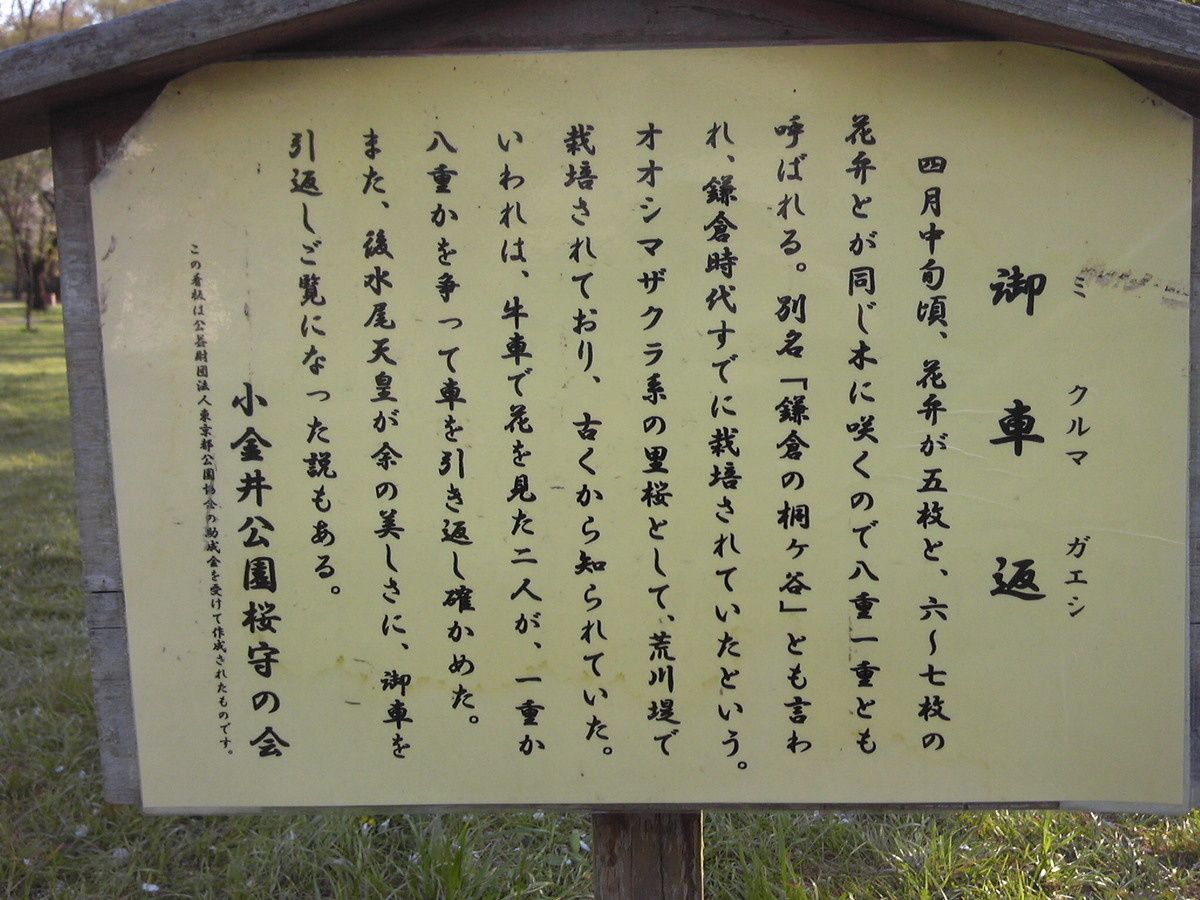 ミ クルマ ガエシ
御車返
四月中旬頃、花弁が五枚と、六～七枚の
花弁とが同じ木に咲くので八重一重とも
呼ばれる。別名「鎌倉の桐ヶ谷」とも言わ
れ、鎌倉時代すでに栽培されていたという。
オオシマザクラ系の里桜として、荒川堤で
栽培されており、古くから知られていた。
いわれは、牛車で花を見た二人が、一重か
八重かを争って車を引き返し確かめた。
また、後水尾天皇が余の美しさに、御車を
引返しご覧になった説もある。
小金井公園桜守の会
この看板は公益財団法人東京都公園協会の助成金を受けて作成されたものです。